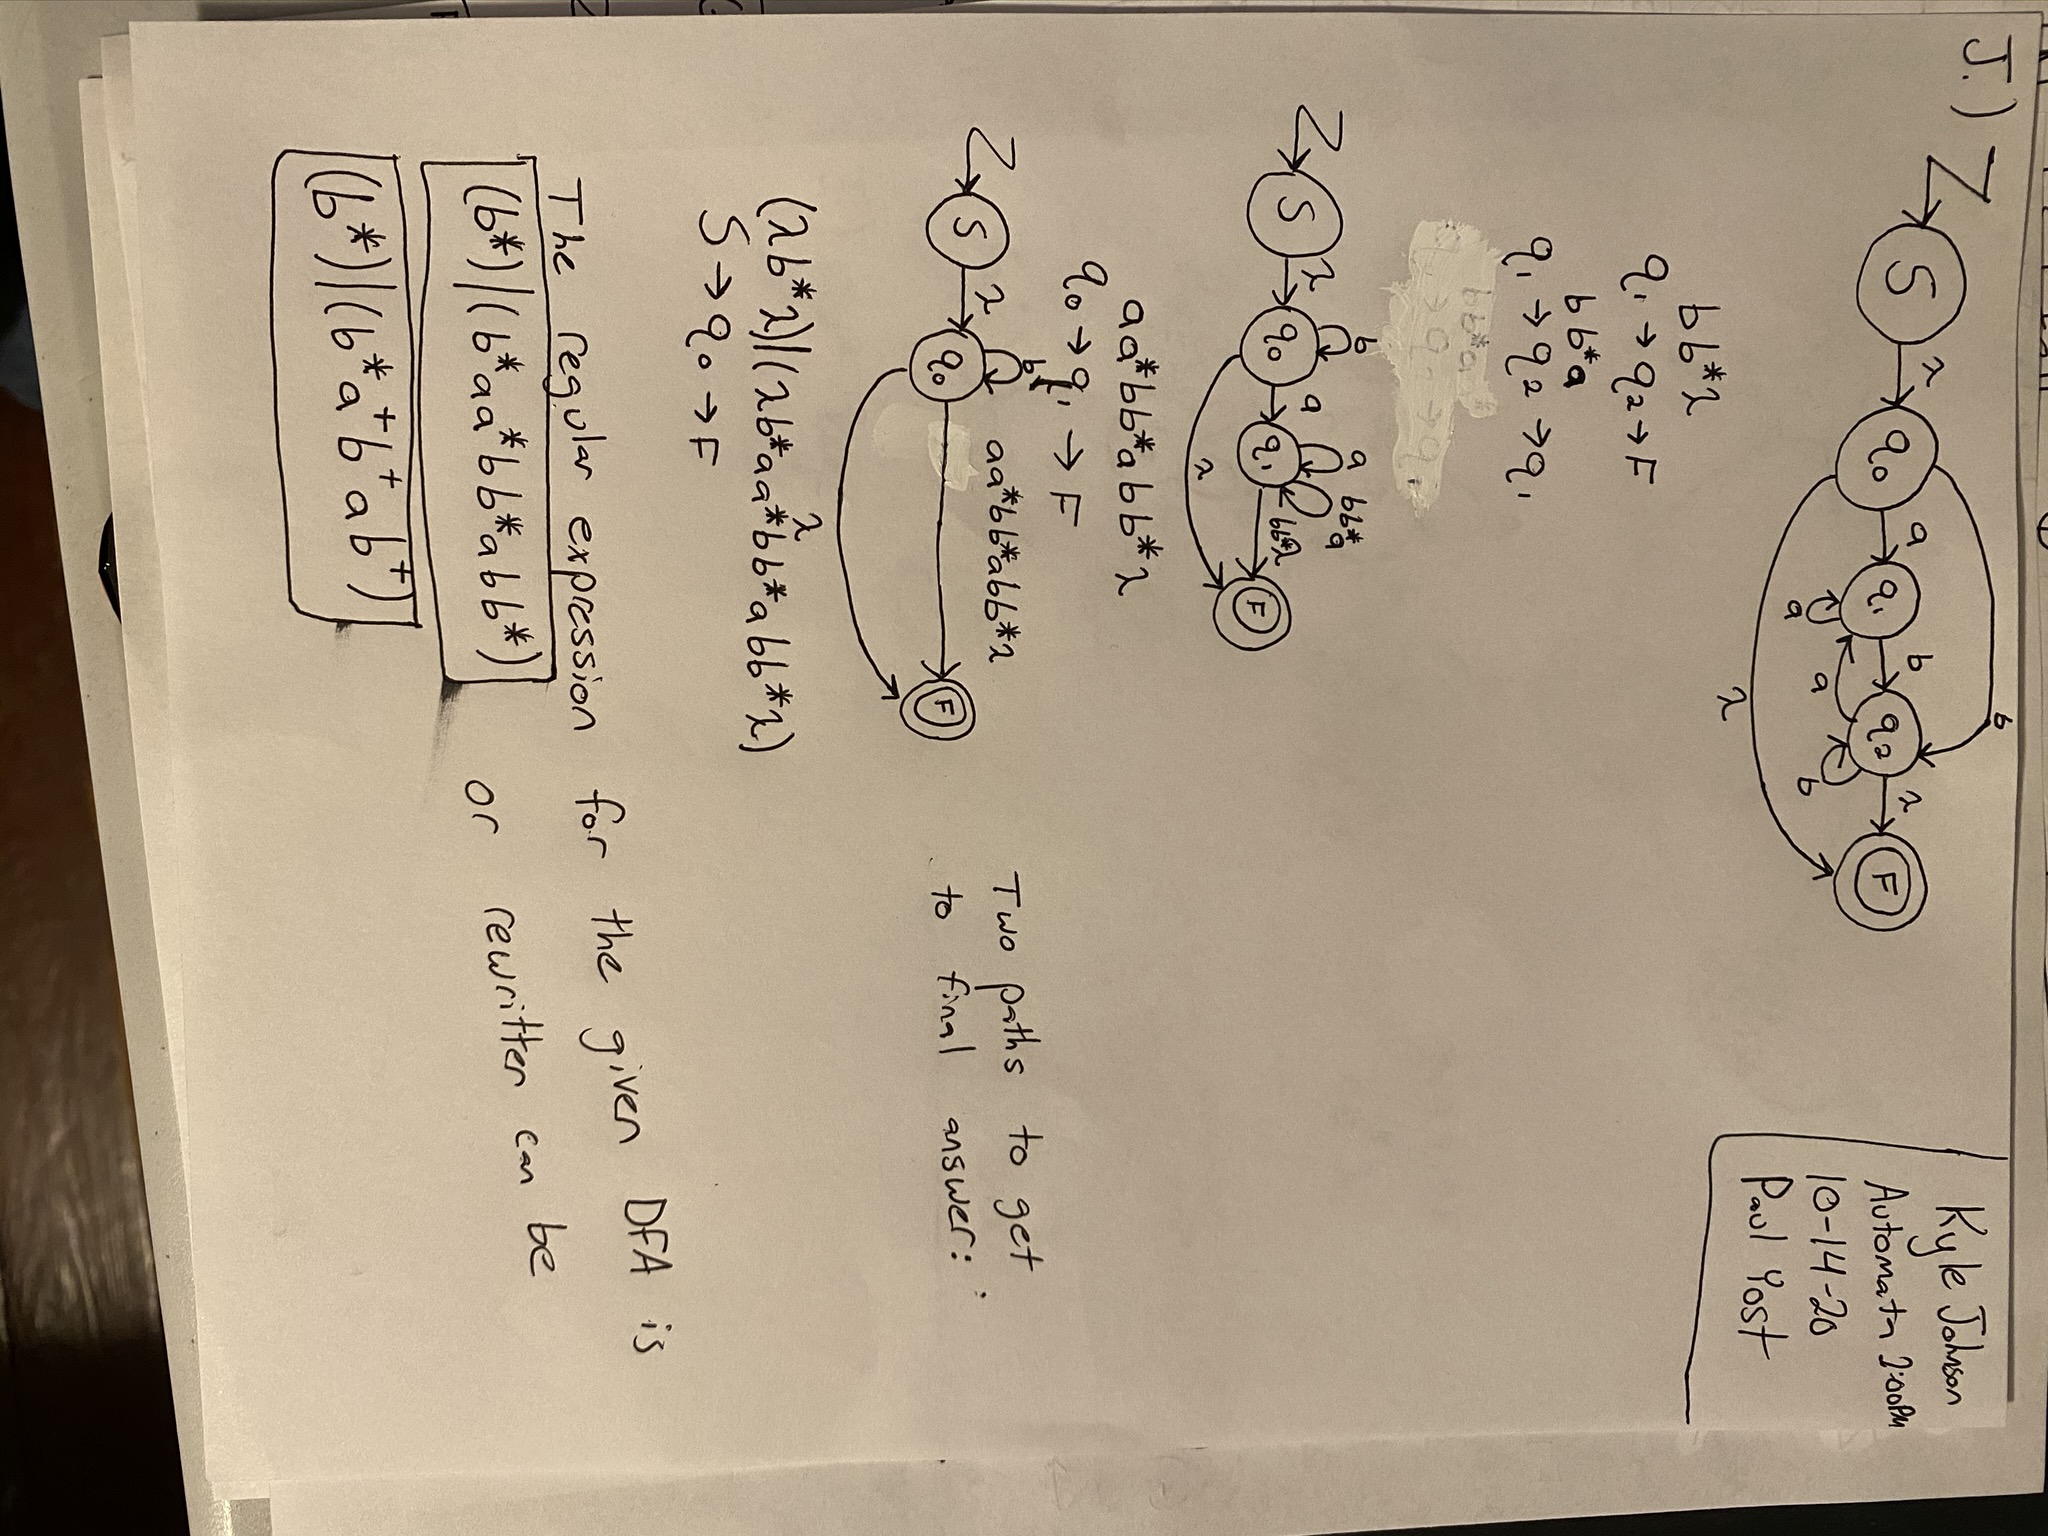 J.)
Kyle Johnson
Automata 2:00PM
10-14-20
Paul Yost
b
S λ q0 a q1 b q2 λ F
a a b
λ
bb*λ
q1 → q2 → F
bb*a
q1 → q2 → q1
b a bb*a
S λ q0 a q1 bb*λ F
λ
aa*bb*abb*λ
q0 → q1 → F
b
S λ q0 aa*bb*abb*λ F
λ
Two paths to get
to final answer:
(λb*λ)|(λb*aa*bb*abb*λ)
S → q0 → F
The regular expression for the given DFA is
(b*)|(b*aa*bb*abb*) or rewritten can be
(b*)|(b*a+b+ab+)